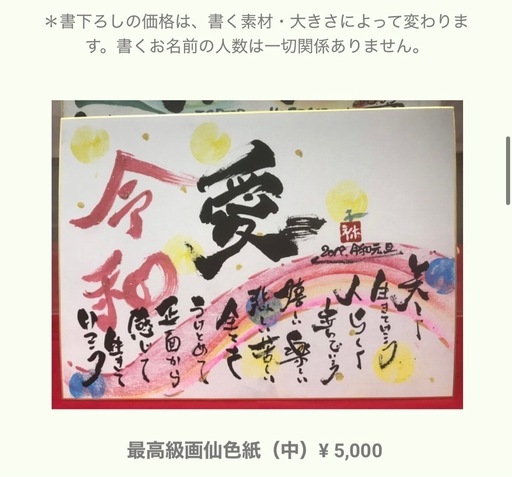 ＊書下ろしの価格は、書く素材・大きさによって変わりま
す。書くお名前の人数は一切関係ありません。
令和
愛
2019. 令和元旦
笑って
生きていこう
人らしく
嬉しい 楽しい
苦しい
全てを
うけとめて
正面から
感じて
生きて
いこう
最高級画仙色紙（中）¥ 5,000